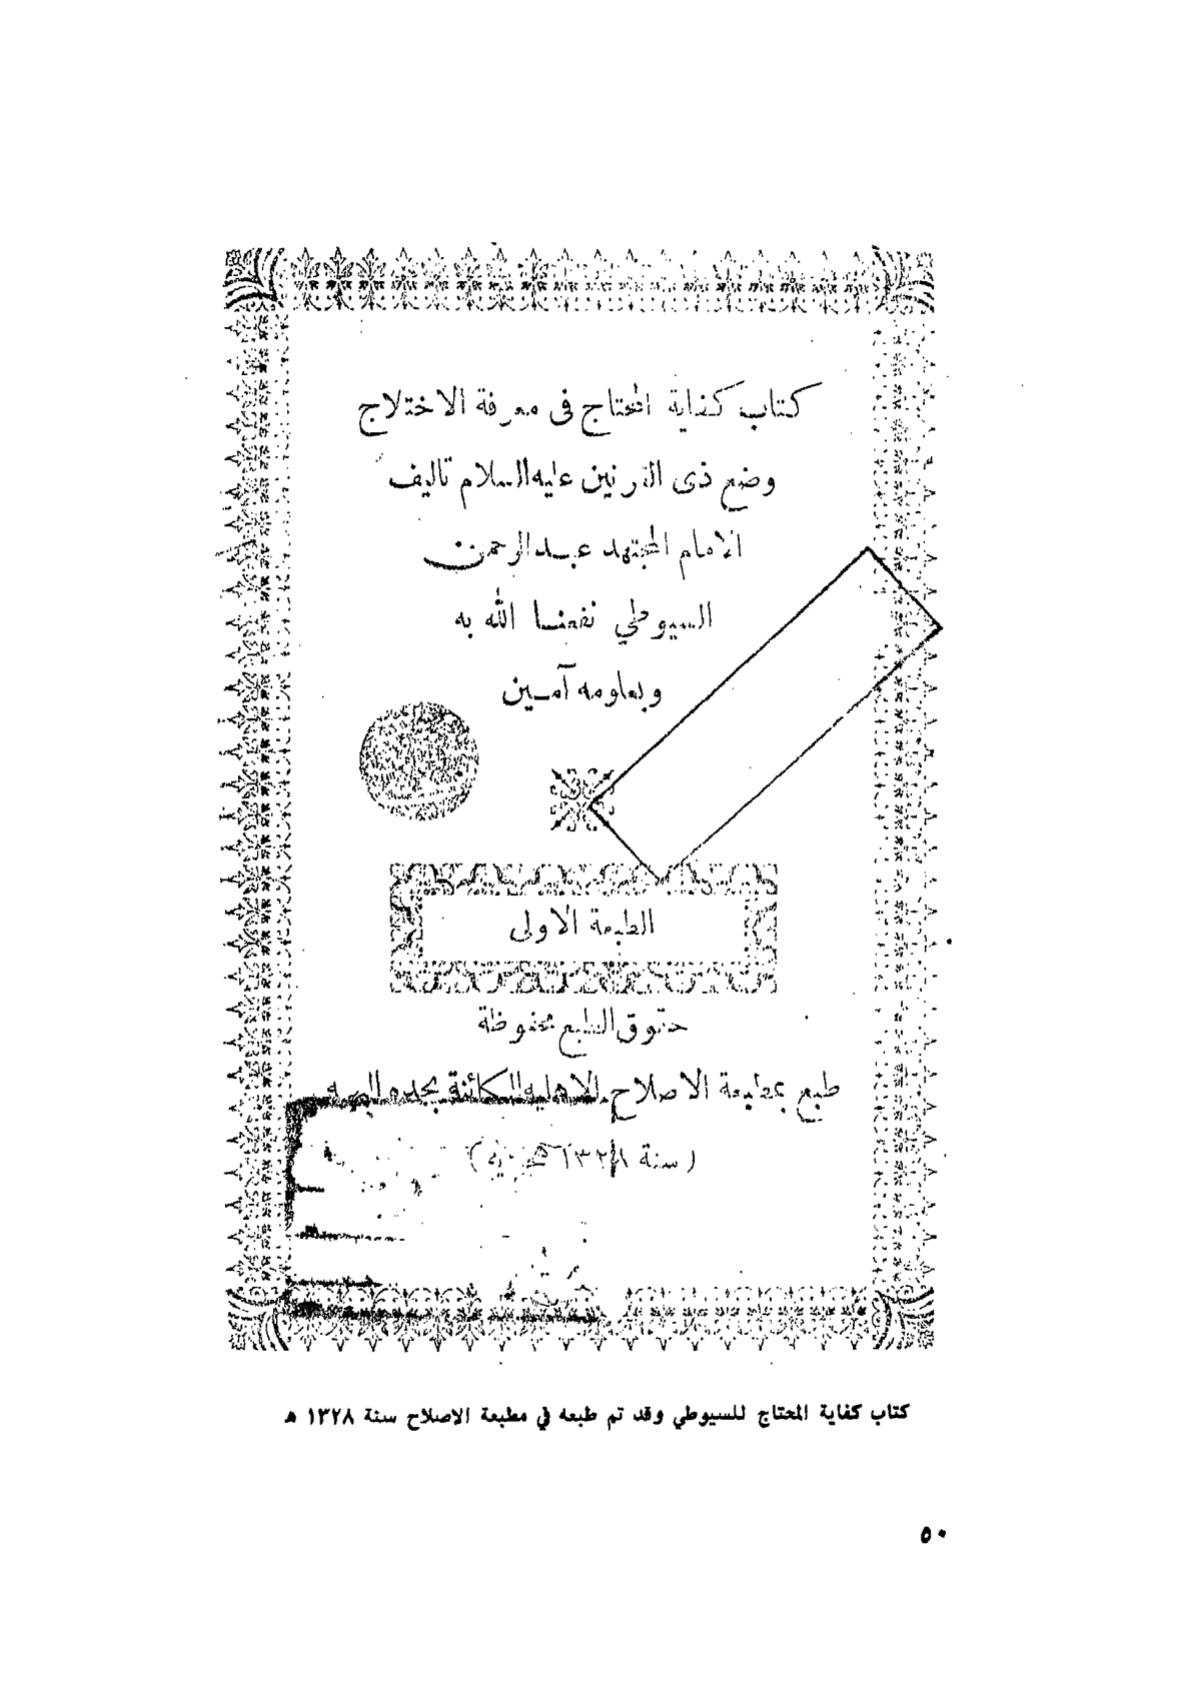 كتاب كفاية المحتاج فى معرفة الاختلاج
وضع ذى القرنين عليه السلام تاليف
الامام المجتهد عبد الرحمن
السيوطي نفعنا الله به
وبعلومه آمين
الطبعة الاولى
حقوق الطبع محفوظة
طبع بمطبعة الاصلاح الاهليه الكائنة بجده البهيه
(سنة ١٣٢٨ هجريه)
كتاب كفاية المحتاج للسيوطي وقد تم طبعه في مطبعة الاصلاح سنة ١٣٢٨ هـ
٥٠